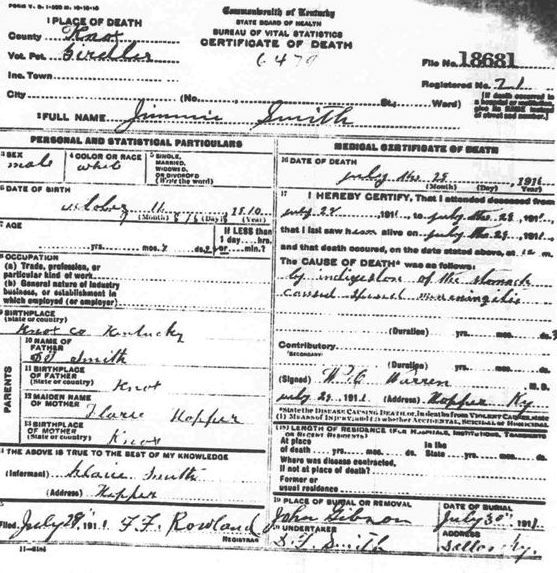 FORM V. S. 1-
Commonwealth of Kentucky
STATE BOARD OF HEALTH
BUREAU OF VITAL STATISTICS
CERTIFICATE OF DEATH
1 PLACE OF DEATH
County Knox
Vot. Pct. Girdler
Inc. Town
City (No. St.; Ward)
File No. 18681
Registered No.
(If death occurred in a hospital or institution give its NAME instead of street and number.)
2 FULL NAME Jimmie Smith
PERSONAL AND STATISTICAL PARTICULARS
3 SEX
male
4 COLOR OR RACE
5 SINGLE, MARRIED, WIDOWED, OR DIVORCED (Write the word)
6 DATE OF BIRTH
(Month) (Day) (Year)
7 AGE
yrs. mos. ds.
If LESS than 1 day, hrs. or min.?
8 OCCUPATION
(a) Trade, profession, or particular kind of work
(b) General nature of industry business, or establishment in which employed (or employer)
9 BIRTHPLACE
(State or country)
Knox Co Kentucky
PARENTS
10 NAME OF FATHER
Smith
11 BIRTHPLACE OF FATHER
(State or country)
Knox
12 MAIDEN NAME OF MOTHER
Hopper
13 BIRTHPLACE OF MOTHER
(State or country)
Knox
14 THE ABOVE IS TRUE TO THE BEST OF MY KNOWLEDGE
(Informant) Smith
(Address) Hopper
Filed July 28 1911 F. F. Rowland
REGISTRAR
MEDICAL CERTIFICATE OF DEATH
16 DATE OF DEATH
July the 28, 1911
(Month) (Day) (Year)
17 I HEREBY CERTIFY, That I attended deceased from
July 28, 1911 to July the 28, 1911
that I last saw him alive on July the 28, 1911
and that death occured, on the date stated above, at m.
The CAUSE OF DEATH* was as follows:
by indigestion of the stomach
(Duration) yrs. mos. ds.
Contributory
SECONDARY
(Duration) yrs. mos. ds.
(Signed) Warren M. D.
July 29, 1911 (Address) Hopper Ky
*State the DISEASE CAUSING DEATH, or, in deaths from VIOLENT CAUSES, state (1) MEANS OF INJURY; and (2) whether ACCIDENTAL, SUICIDAL or HOMICIDAL
18 LENGTH OF RESIDENCE (FOR HOSPITALS, INSTITUTIONS, TRANSIENTS OR RECENT RESIDENTS)
At place of death yrs. mos. ds. In the State yrs. mos. ds.
Where was disease contracted,
if not at place of death?
Former or usual residence
19 PLACE OF BURIAL OR REMOVAL
John Gibson
DATE OF BURIAL
July 30 1911
UNDERTAKER
Smith
ADDRESS
Ky.